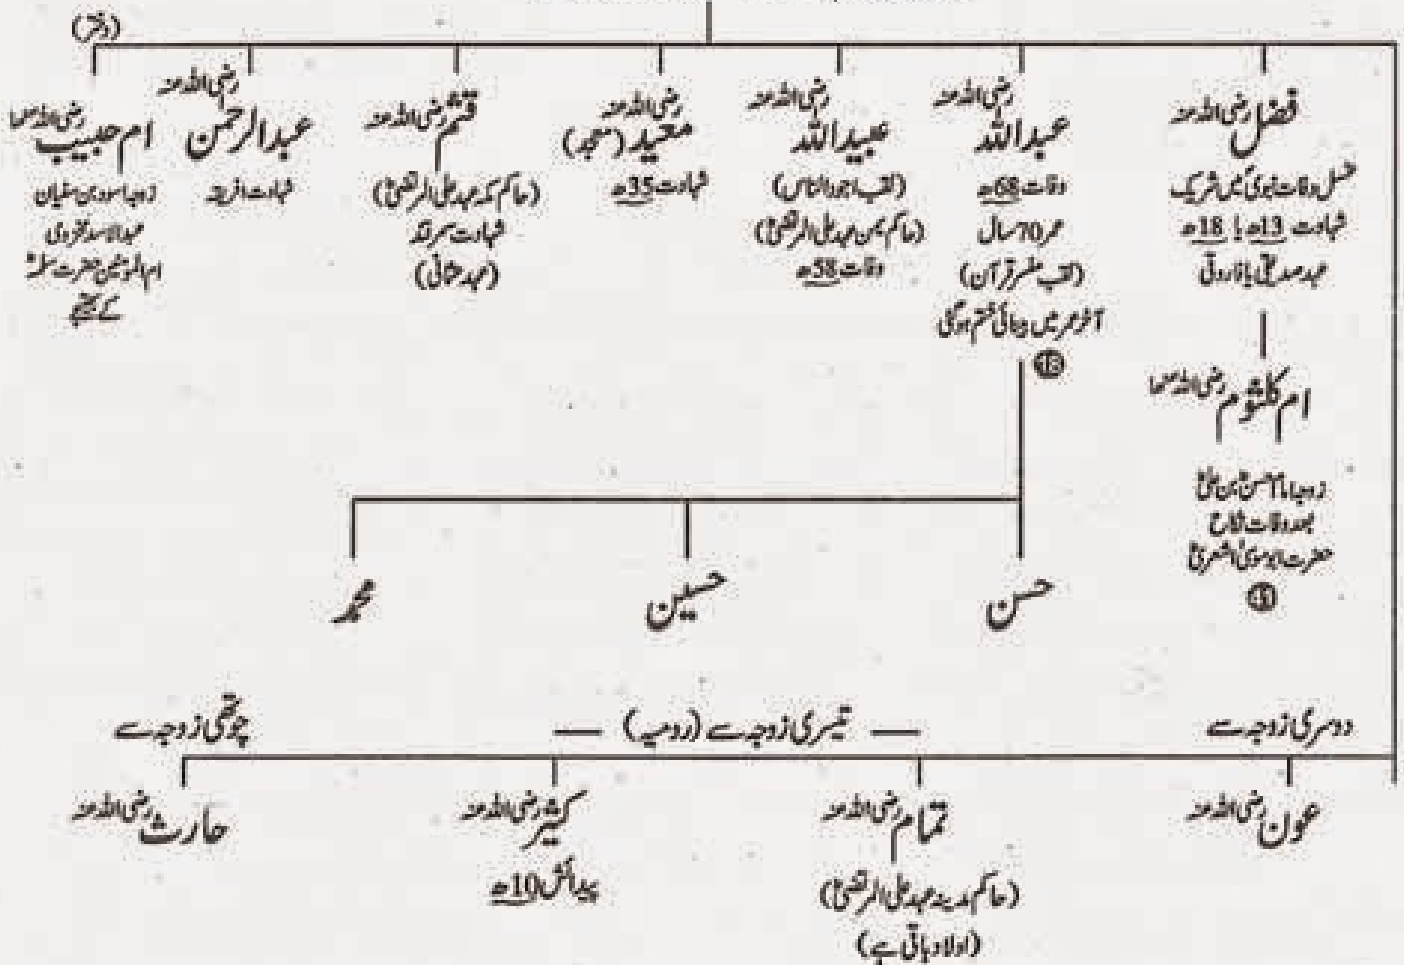 (دختر)
فضل رضی اللہ عنہ
غسل وفات نبوی میں شریک
شہادت 13ھ یا 18ھ
عہد صدیقی یا فاروقی
ام کلثوم رضی اللہ عنہا
زوجہ امام حسن بن علیؓ
بعد وفات نکاح
حضرت ابوموسیٰ اشعریؓ
عبداللہ رضی اللہ عنہ
وفات 68ھ
عمر 70 سال
(لقب مفسر قرآن)
آخر عمر میں بینائی ختم ہوگئی
عبیداللہ رضی اللہ عنہ
(لقب اجود الناس)
(حاکم یمن عہد علی المرتضیٰؓ)
وفات 58ھ
معبد رضی اللہ عنہ
شہادت 35ھ
قثم رضی اللہ عنہ
(حاکم مکہ عہد علی المرتضیٰؓ)
شہادت سمرقند
(عہد عثمانی)
عبدالرحمن رضی اللہ عنہ
شہادت افریقہ
ام حبیب رضی اللہ عنہا
زوجہ اسود بن سفیان
عبدالاسد مخزومی
ام المومنین حضرت سلمہؓ
کے بھتیجے
حسن
حسین
محمد
دوسری زوجہ سے
تیسری زوجہ سے (رومیہ)
چوتھی زوجہ سے
عون رضی اللہ عنہ
تمام رضی اللہ عنہ
(حاکم مدینہ عہد علی المرتضیٰؓ)
(اولاد باقی ہے)
کثیر رضی اللہ عنہ
پیدائش 10ھ
حارث رضی اللہ عنہ